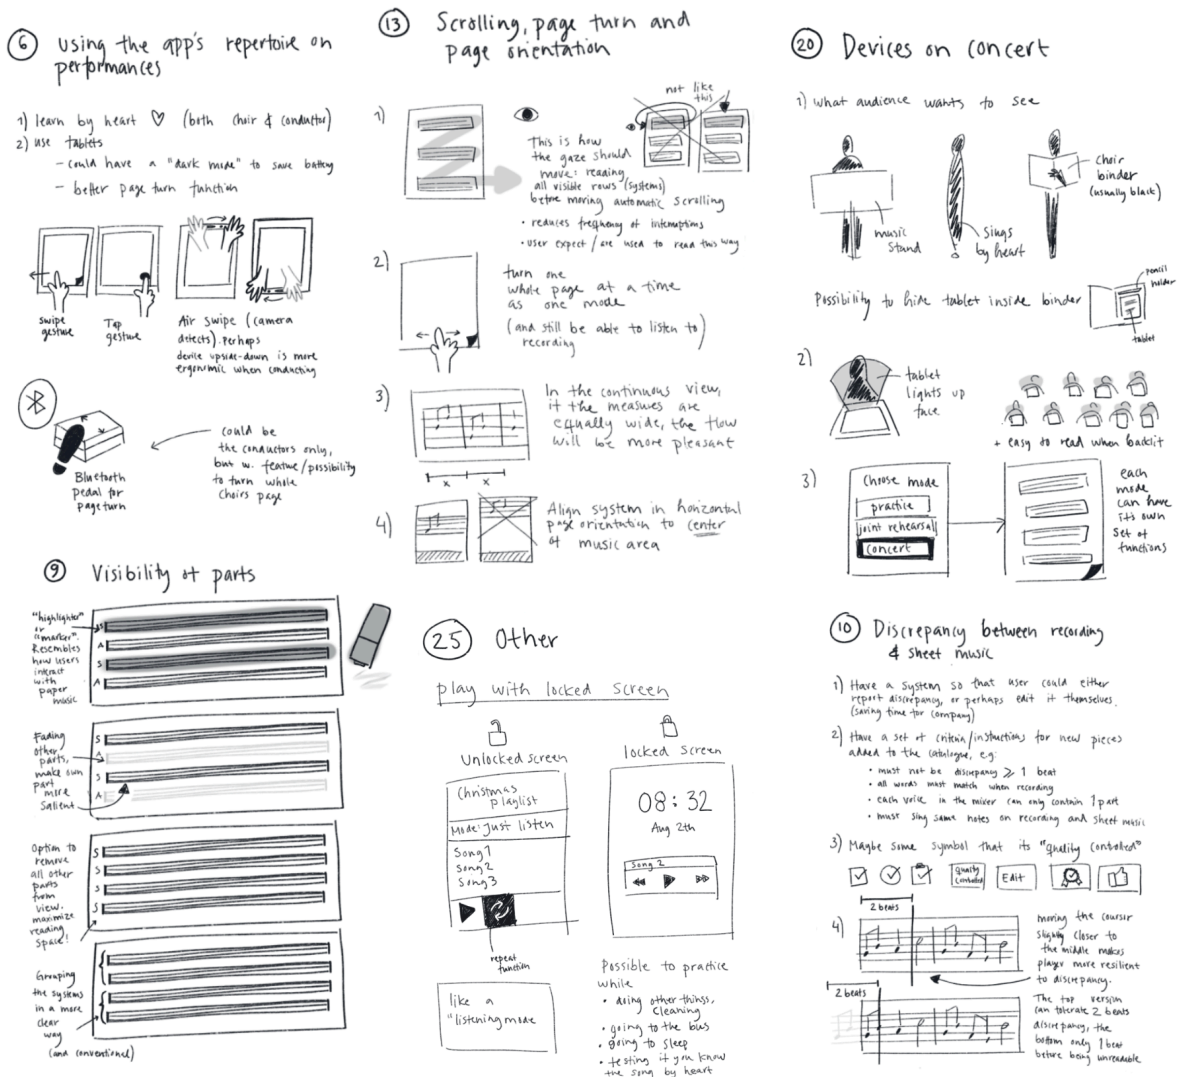 6 Using the app's repertoire on
performances
1) learn by heart ♡ (both choir & conductor)
2) use tablets
- could have a "dark mode" to save battery
- better page turn function
swipe
gesture
Tap
gesture
Air swipe (camera
detects). Perhaps
device upside-down is more
ergonomic when conducting
Bluetooth
pedal for
page turn
could be
the conductors only,
but w. feature/possibility
to turn whole
choirs page
9 Visibility of parts
"highlighter"
or
"marker".
Resembles
how users
interact
with
paper
music
S
A
S
A
Fading
other
parts,
make own
part
more
salient
S
A
S
A
Option to
remove
all other
parts
from
view.
maximize
reading
space!
S
S
S
S
Grouping
the systems
in a more
clear
way
(and conventional)
13 Scrolling, page turn and
page orientation
1)
not like
this
This is how
the gaze should
move: reading
all visible rows (systems)
before moving automatic scrolling
• reduces frequency of interruptions
• user expect/are used to read this way
2)
turn one
whole page at a time
as one mode
(and still be able to listen to
recording)
3)
In the continuous view,
if the measures are
equally wide, the flow
will be more pleasant
x x
4)
Align system in horizontal
page orientation to center
of music area
25 Other
play with locked screen
Unlocked screen
Christmas
playlist
Mode: Just listen
Song 1
Song 2
Song 3
repeat
function
like a
"listening mode
locked screen
08:32
Aug 2th
Song 2
Possible to practice
while
• doing other things,
cleaning
• going to the bus
• going to sleep
• testing if you know
the song by heart
20 Devices on concert
1) what audience wants to see
music
stand
sings
by heart
choir
binder
(usually black)
Possibility to hide tablet inside binder
pencil
holder
tablet
2)
tablet
lights up
face
+ easy to read when backlit
3)
Choose mode
practice
joint rehearsal
concert
each
mode
can have
it's own
set of
functions
10 Discrepancy between recording
& sheet music
1) Have a system so that user could either
report discrepancy, or perhaps edit it themselves.
(saving time for company)
2) Have a set of criteria/instructions for new pieces
added to the catalogue, e.g:
• must not be discrepancy ⩾ 1 beat
• all words must match when recording
• each voice in the mixer can only contain 1 part
• must sing same notes on recording and sheet music
3) Maybe some symbol that its "quality controlled"
Quality
Controlled
Edit
4)
2 beats
moving the coursor
slightly closer to
the middle makes
player more resilient
to discrepancy.
2 beats
The top version
can tolerate 2 beats
discrepancy, the
bottom only 1 beat
before being unreadable